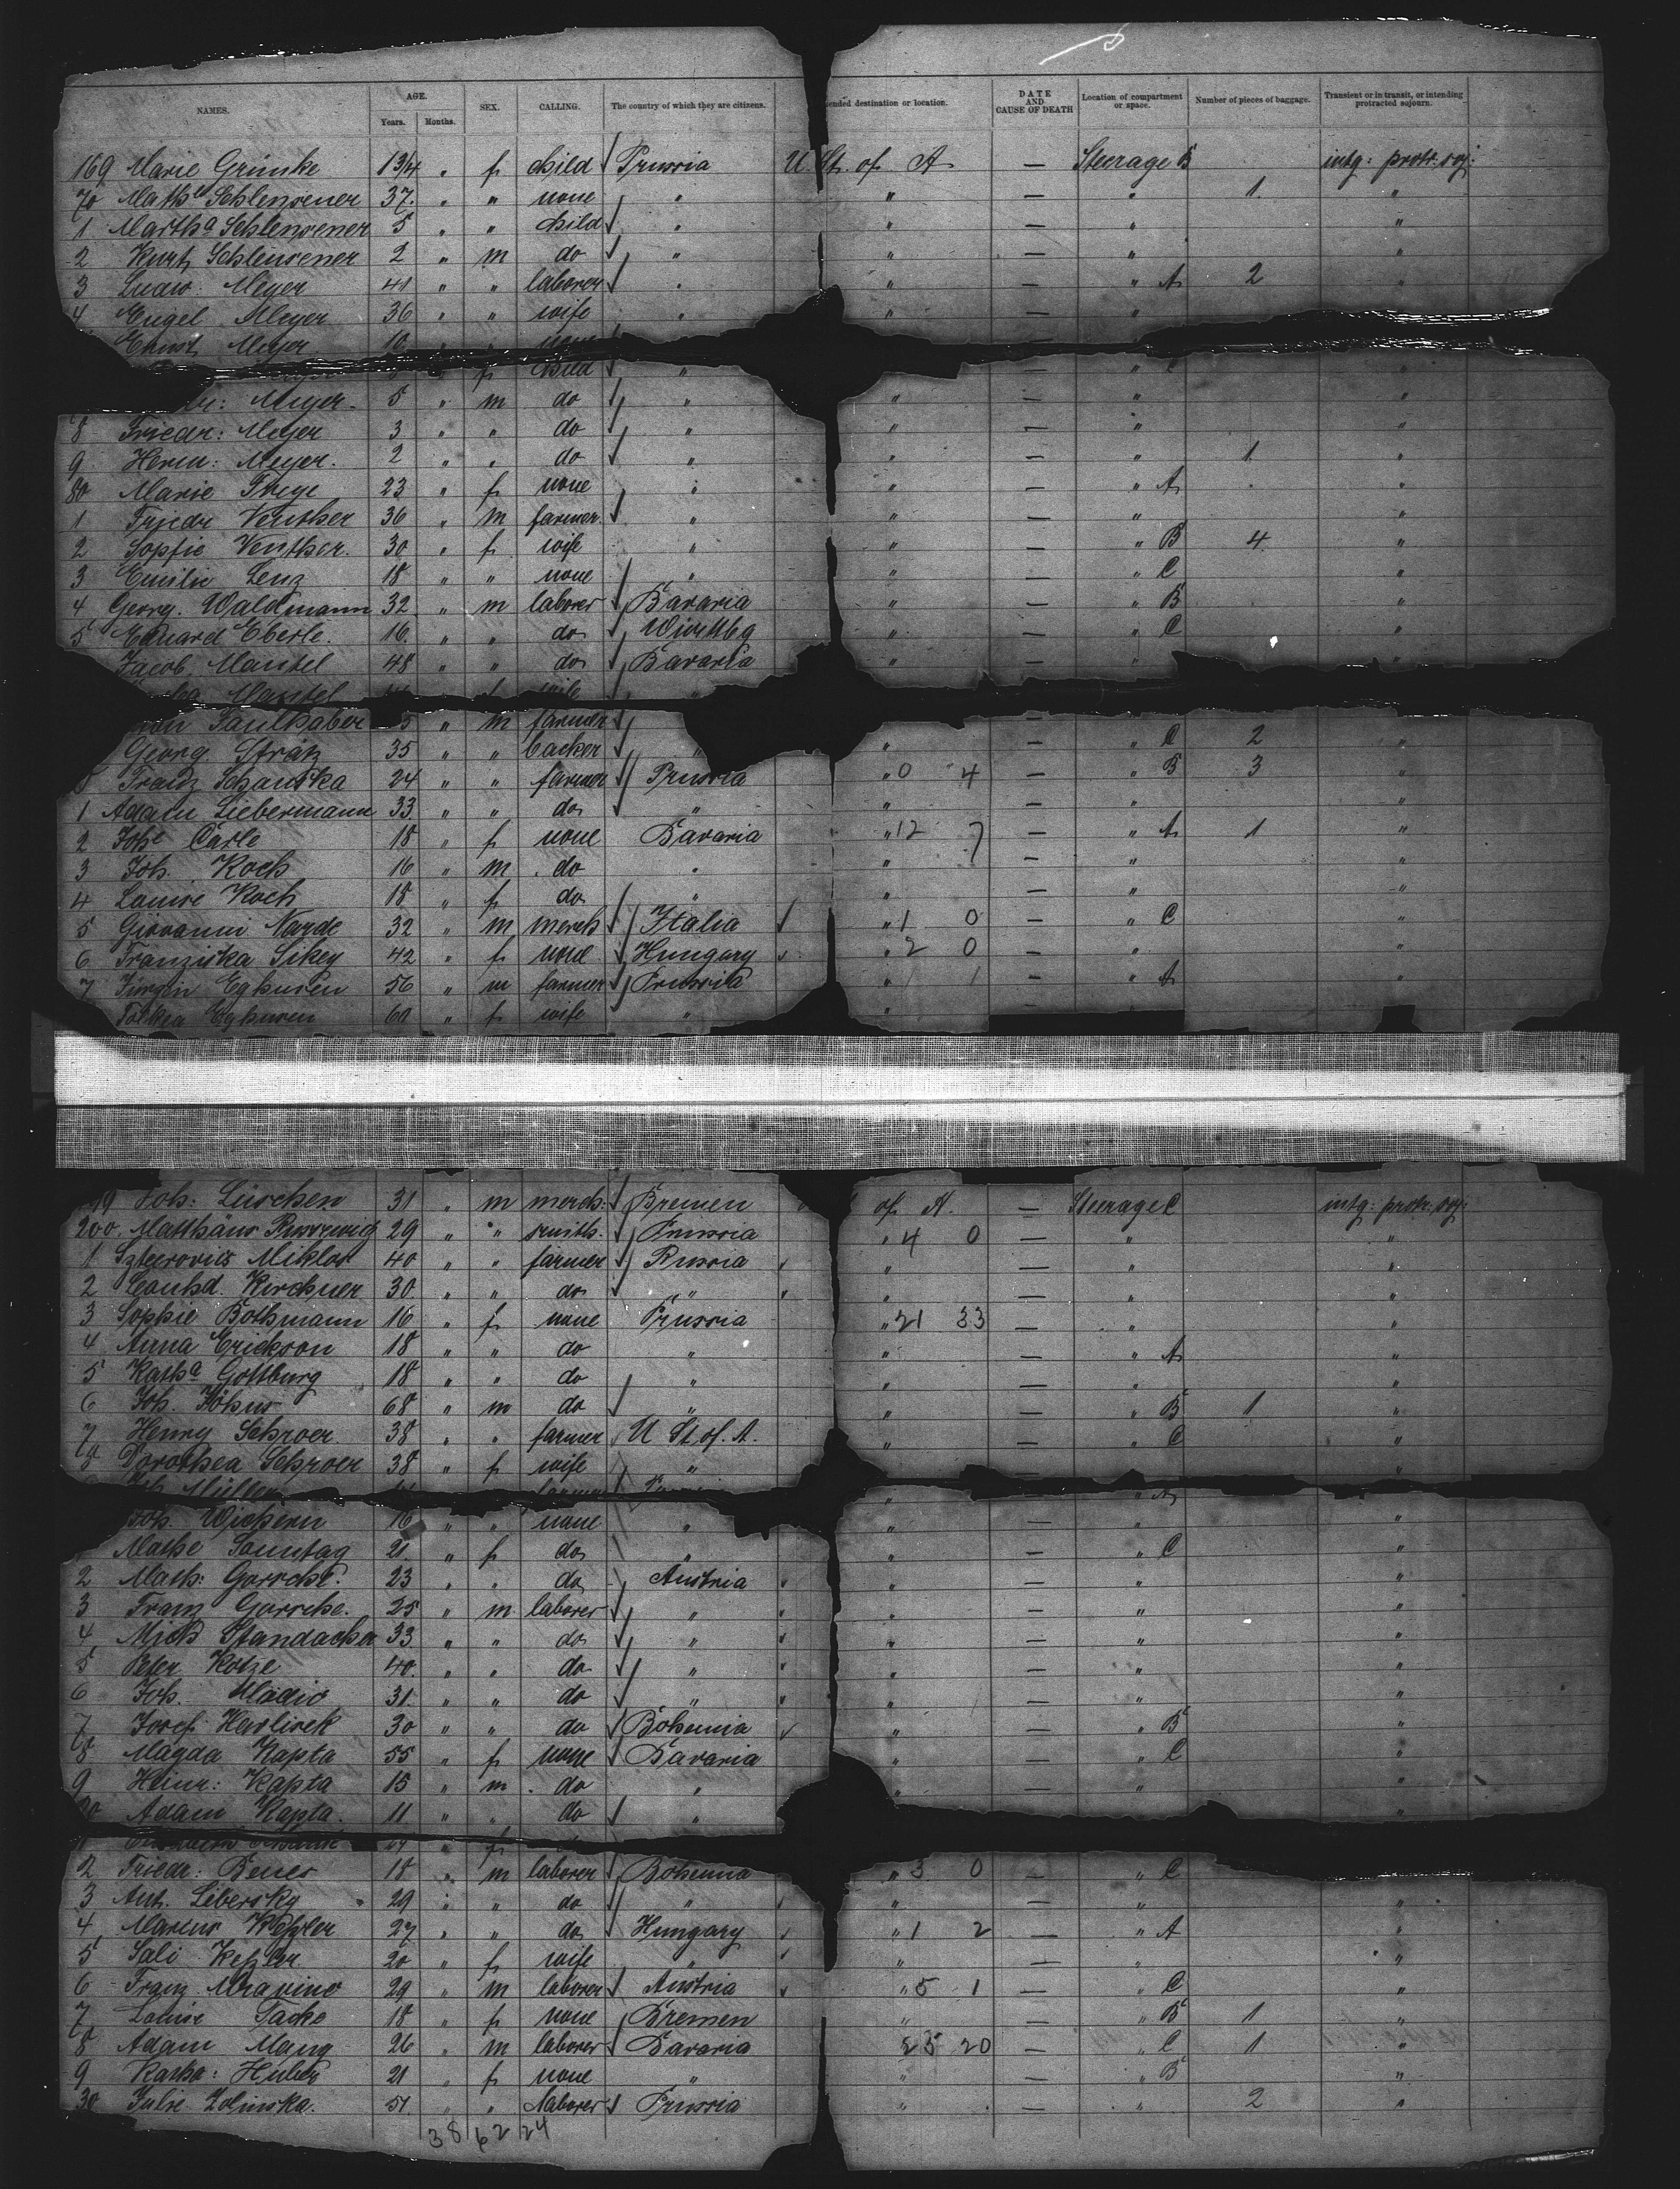 NAMES. AGE. Years. Months. SEX. CALLING. The country of which they are citizens. ended destination or location. DATE AND CAUSE OF DEATH Location of compartment or space. Number of pieces of baggage. Transient or in transit, or intending protracted sojourn.
169 Marie Grimke 13/4 " f child Prussia U. St. of A — Steerage B intg: protr. soj:
70 Mathe Schlensener 37 " " none " " — " 1 "
1 Martha Schlensener 5 " " child " " — " "
2 Kurt Schlensener 2 " m do " " — " "
3 Ludw: Meyer 41 " " laborer " " — " A 2 "
4 Engel Meyer 36 " " wife " " — " "
Ernst Meyer 10 " " none —
f child " — " C "
Meyer 5 " m do " " — " "
8 Friedr: Meyer 3 " " do " " — " "
9 Herm: Meyer. 2 " " do " " — " 1 "
80 Marie Frege 23 " f none " " — " A "
1 Friedr Venther 36 " m farmer " " — " "
2 Sopfie Venther. 30 " f wife " " — " B 4 "
3 Emilie Lenz 18 " " none " " — " C "
4 Georg. Waldmann 32 " m laborer Bavaria " — " B "
5 Eduard Eberle. 16 " " do Württbg " — " C "
Jacob Mantel 48 " " do Bavaria " — " "
Mantel f wife "
Faulhaber 5 " m farmer — "
Georg Strätz 35 " " backer " " — " C 2 "
Franz Schanska 24 " " farmer Prussia " 0 4 — " B 3 "
1 Adam Liebermann 33 " " do " " — " "
2 Johe Carle 18 " f none Bavaria " 12 7 — " A 1 "
3 Joh. Koch 16 " m do " " — " "
4 Louise Koch 18 " f do " " — " "
5 Giovanni Narde 32 " m merch Italia " 1 0 — " C "
6 Franziska Sikey 42 " f none Hungary " 2 0 — " "
7 Jürgen Eghusen 56 " m farmer Prussia " 1 1 — " A "
Eghusen 60 " f wife " "
99 Joh: Lürchen 31 " m merch: Bremen of A. — Steerage C intg: protr. soj:
200. Matthäus 29 " " smith. Prussia " 4 0 — " "
1 Miklos 40 " " farmer Russia " — " "
2 Leonhd. Kirchner 30 " " do " " — " "
3 Sophie Bothmann 16 " f none Prussia " 21 33 — " "
4 Anna Erickson 18 " " do " " — " A "
5 Katha Gottburg 18 " " do " " — " "
6 Joh. Johns 68 " m do " " — " B 1 "
7 Henry Schroer 38 " " farmer U St. of. A. " — " C "
8 Dorothea Schroer 38 " f wife " " — " "
Joh Müller farmer " — " A "
Joh. Wichern 16 " " none " " — " "
Mathe Sonntag 21 " f do " " — " C "
2 Math: Gorsche. 23 " " do Austria " — " "
3 Franz Gorsche. 25 " m laborer " " — " "
4 Mich Standacher 33 " " do " " — " "
5 Peter Kotze 40 " " do " " — " "
6 Joh. Uladic 31 " " do " " — " "
7 Josef Havlicek 30 " " do Bohemia " — " B "
8 Magda Kapta 55 " f none Bavaria " — " C "
9 Heinr: Kapta 15 " m do " " — " "
20 Adam Kapta. 11 " " do " "
2 Friedr: Benes 18 " m laborer Bohemia " 3 0 — " C
3 Ant. Libersky 29 " " do " " — " "
4 Marcus Keßler 27 " " do Hungary " 1 2 — " A "
5 Sali Keßler 20 " f wife " " — " "
6 Franz Mravine 29 " m laborer Austria " 5 1 — " C "
7 Louise Tacke 18 " f none Bremen " — " B 1 "
8 Adam Mang 26 " m laborer Bavaria 25 20 — " C 1 "
9 Katha: Huber 21 " f none " " — " B "
30 Julie Zolinska. 51 " " laborer Prussia " — " 2 "
38 62 24